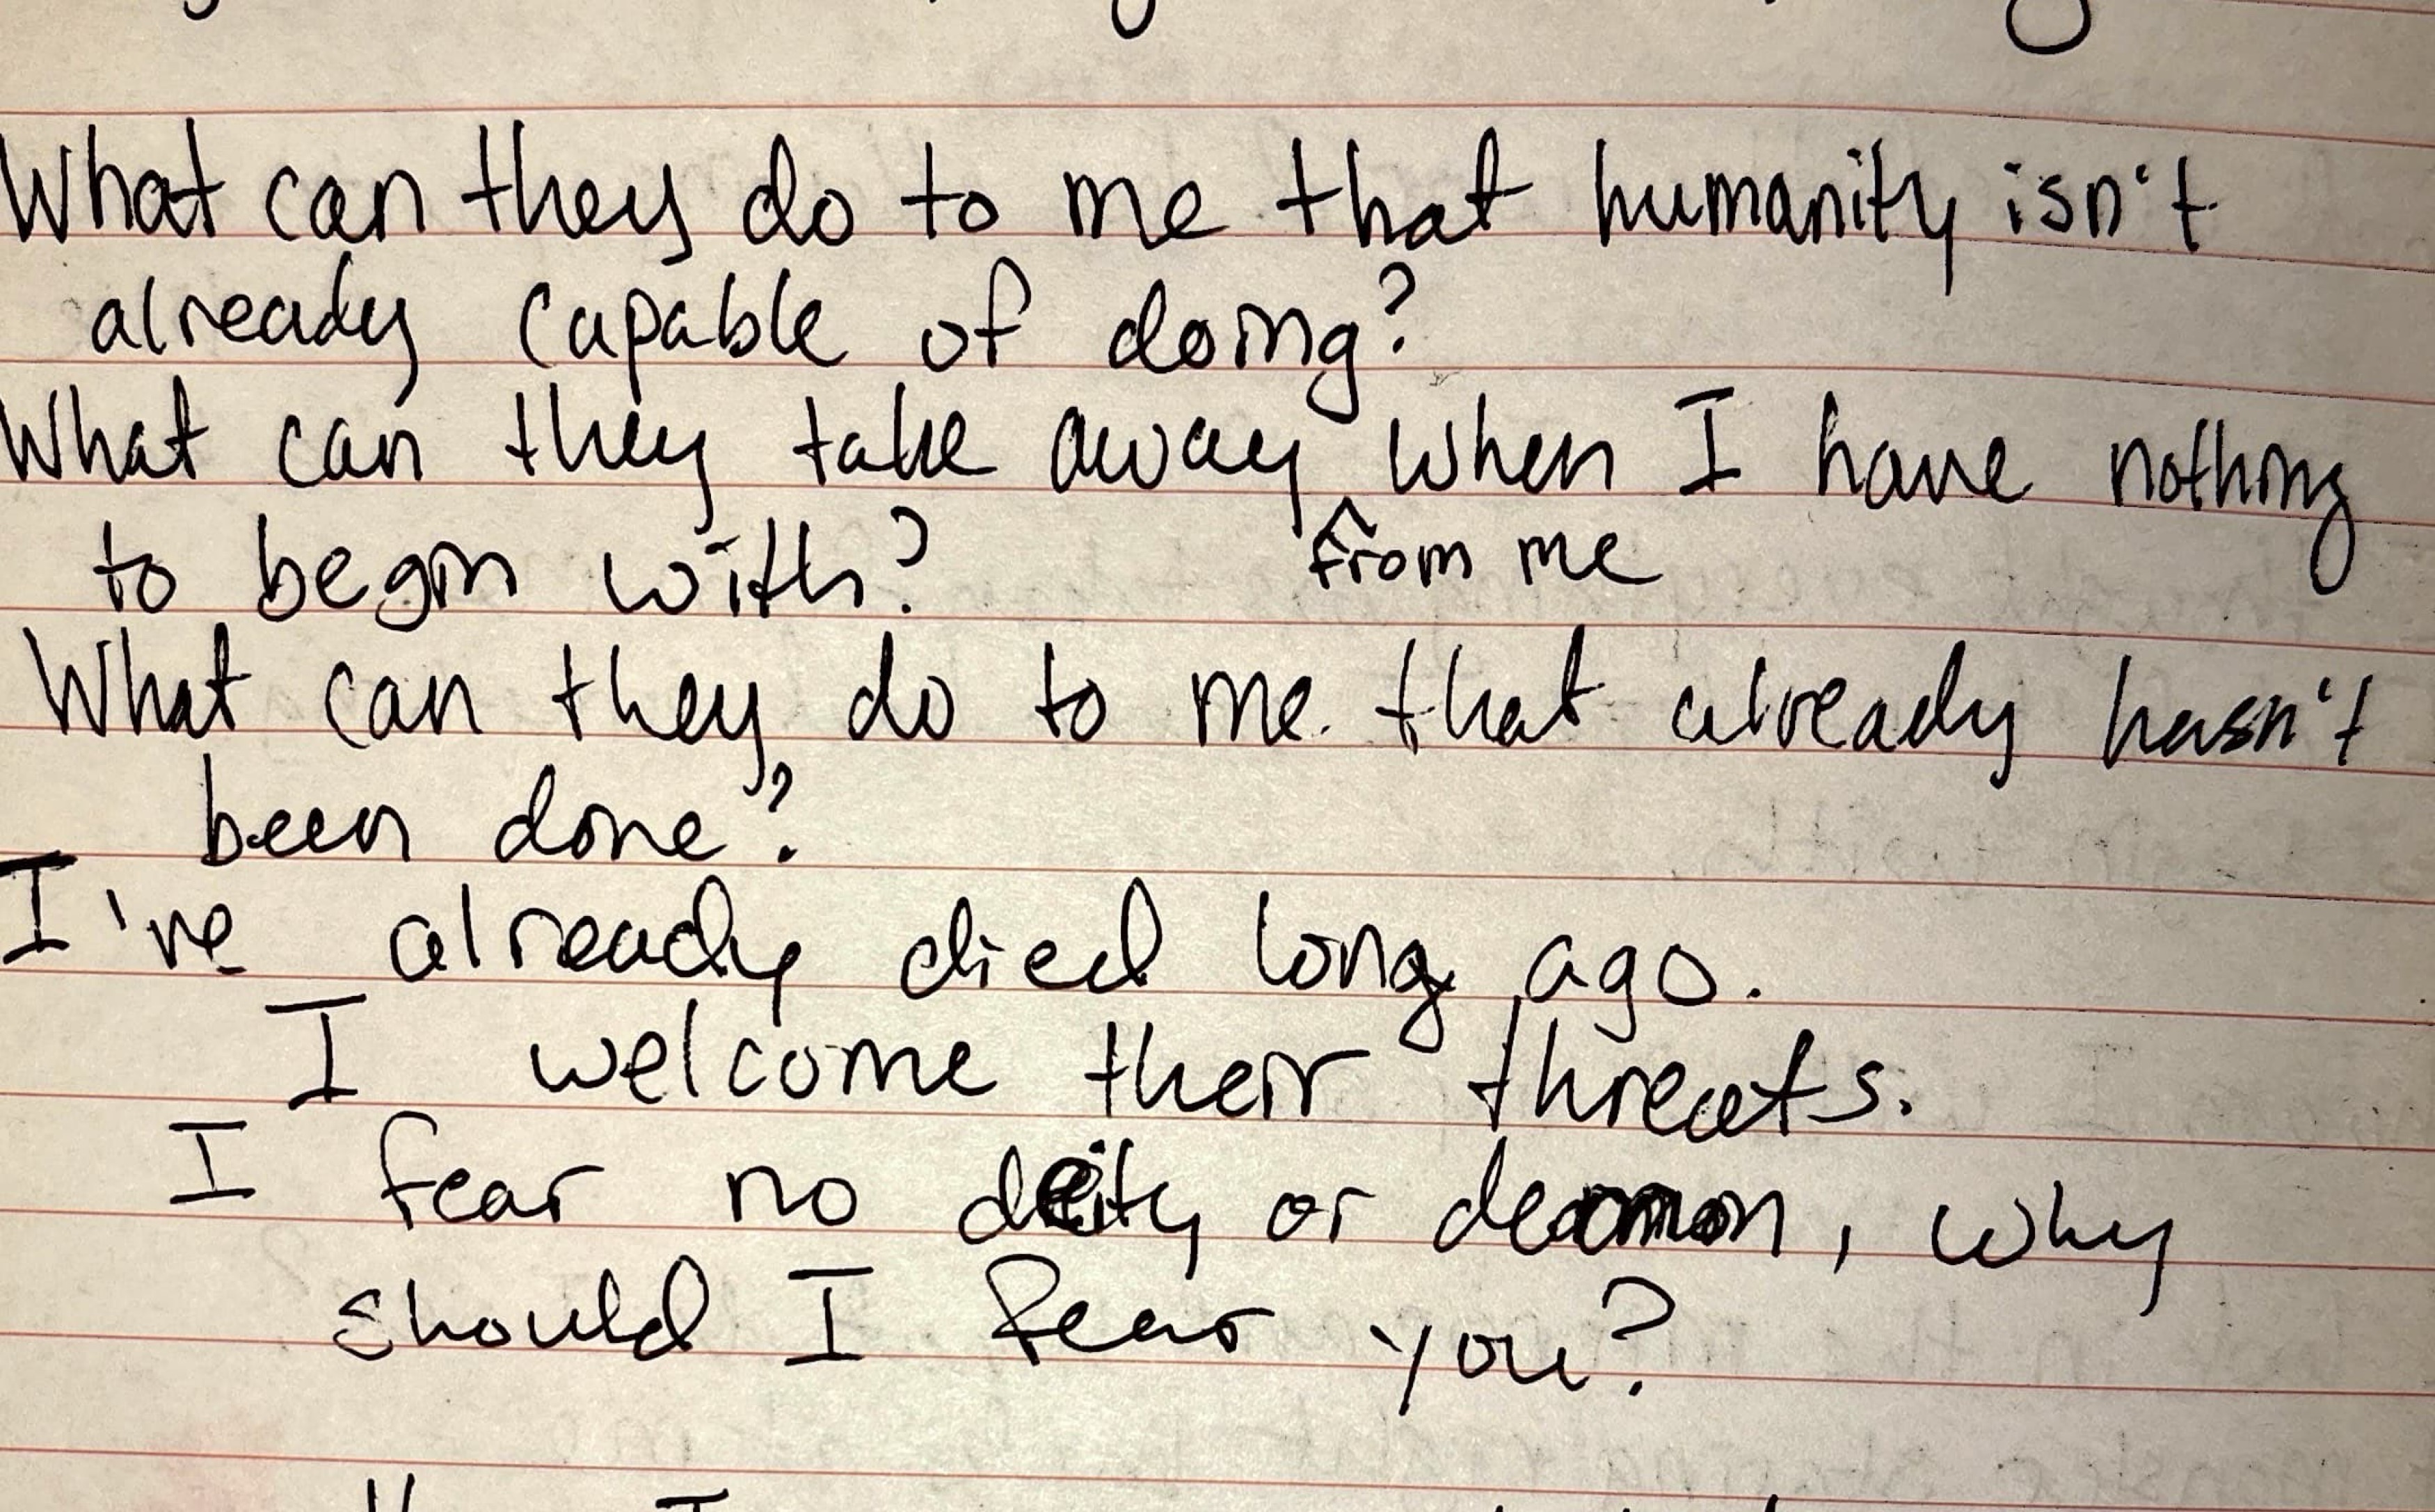 What can they do to me that humanity isn't
already capable of doing?
What can they take away when I have nothing
to begin with? from me
What can they do to me that already hasn't
been done?
I've already died long ago.
I welcome their threats.
I fear no deity or demon, why
should I fear you?